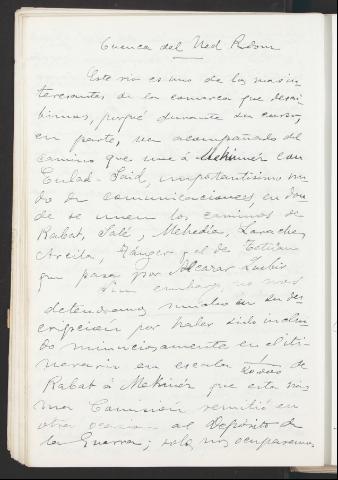 Cuenca del Ued Rdom
Este rio es uno de los mas in-
teresantes de la comarca que descri-
bimos, porqué durante su curso,
en parte, va acompañado del
camino que une á Mekinéz con
Eulad-Said, importantisimo nu-
do de comunicaciones, en don-
de se unen los caminos de
Rabat, Salé, Mehedia, Larache,
Arcila, Tánger y el de Tetuan
que pasa por Alcazar Quibir
Sin embargo, no nos
detendremos mucho en su des-
cripcion por haber sido inclui-
do minuciosamente en el iti-
nerario en escala 1/20.000 de
Rabat á Mekinéz que esta mis-
ma Comision remitió en
otra ocasion al Depósito de
la Guerra; solo nos ocuparemos